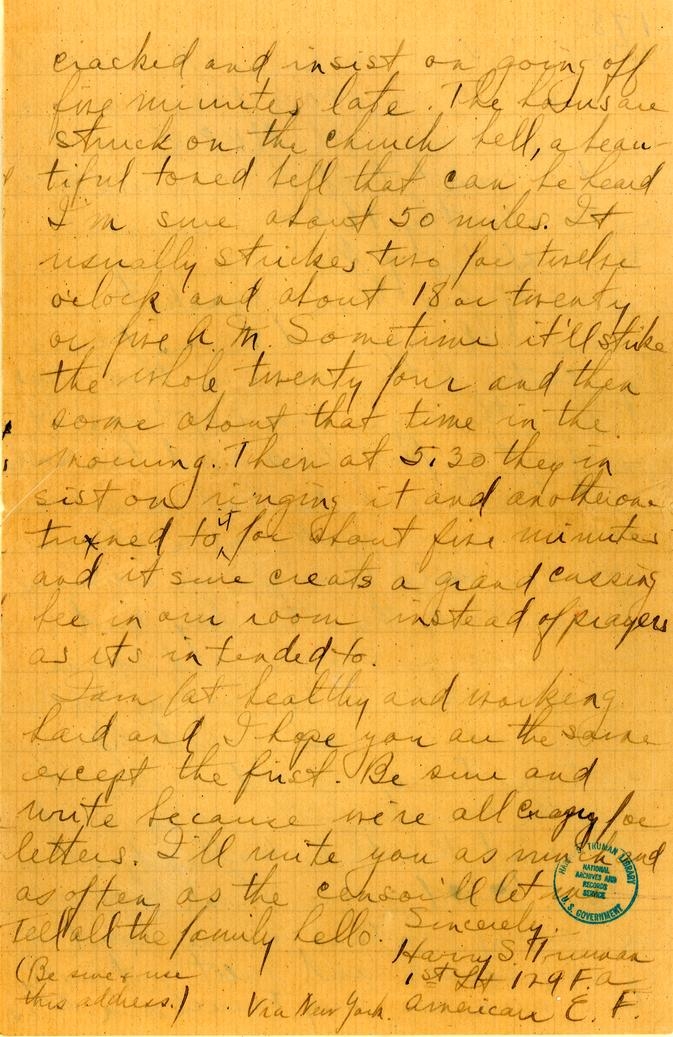 cracked and insist on going off
five minutes late. The hours are
struck on the church bell, a beau-
tiful toned bell that can be heard
I'm sure about 50 miles. It
usually strikes two for twelve
oclock and about 18 or twenty
or five A.M. Sometimes it'll strike
the whole twenty four and then
some about that time in the
morning. Then at 5:30 they in
sist on ringing it and another one
tuned to it for about five minutes
and it sure creats a grand cussing
bee in our room instead of prayers
as its intended to.
I am fat healthy and working
hard and I hope you are the same
except the first. Be sure and
write because we're all crazy for
letters. I'll write you as much and
as often as the censor'll let me
Tell all the family hello.
Sincerely.
Harry S. Truman
1st Lt 129 F.A
American E. F.
(Be sure & use
this address.)
Via New York.
HARRY S. TRUMAN LIBRARY
NATIONAL
ARCHIVES AND
RECORDS
SERVICE
U.S. GOVERNMENT